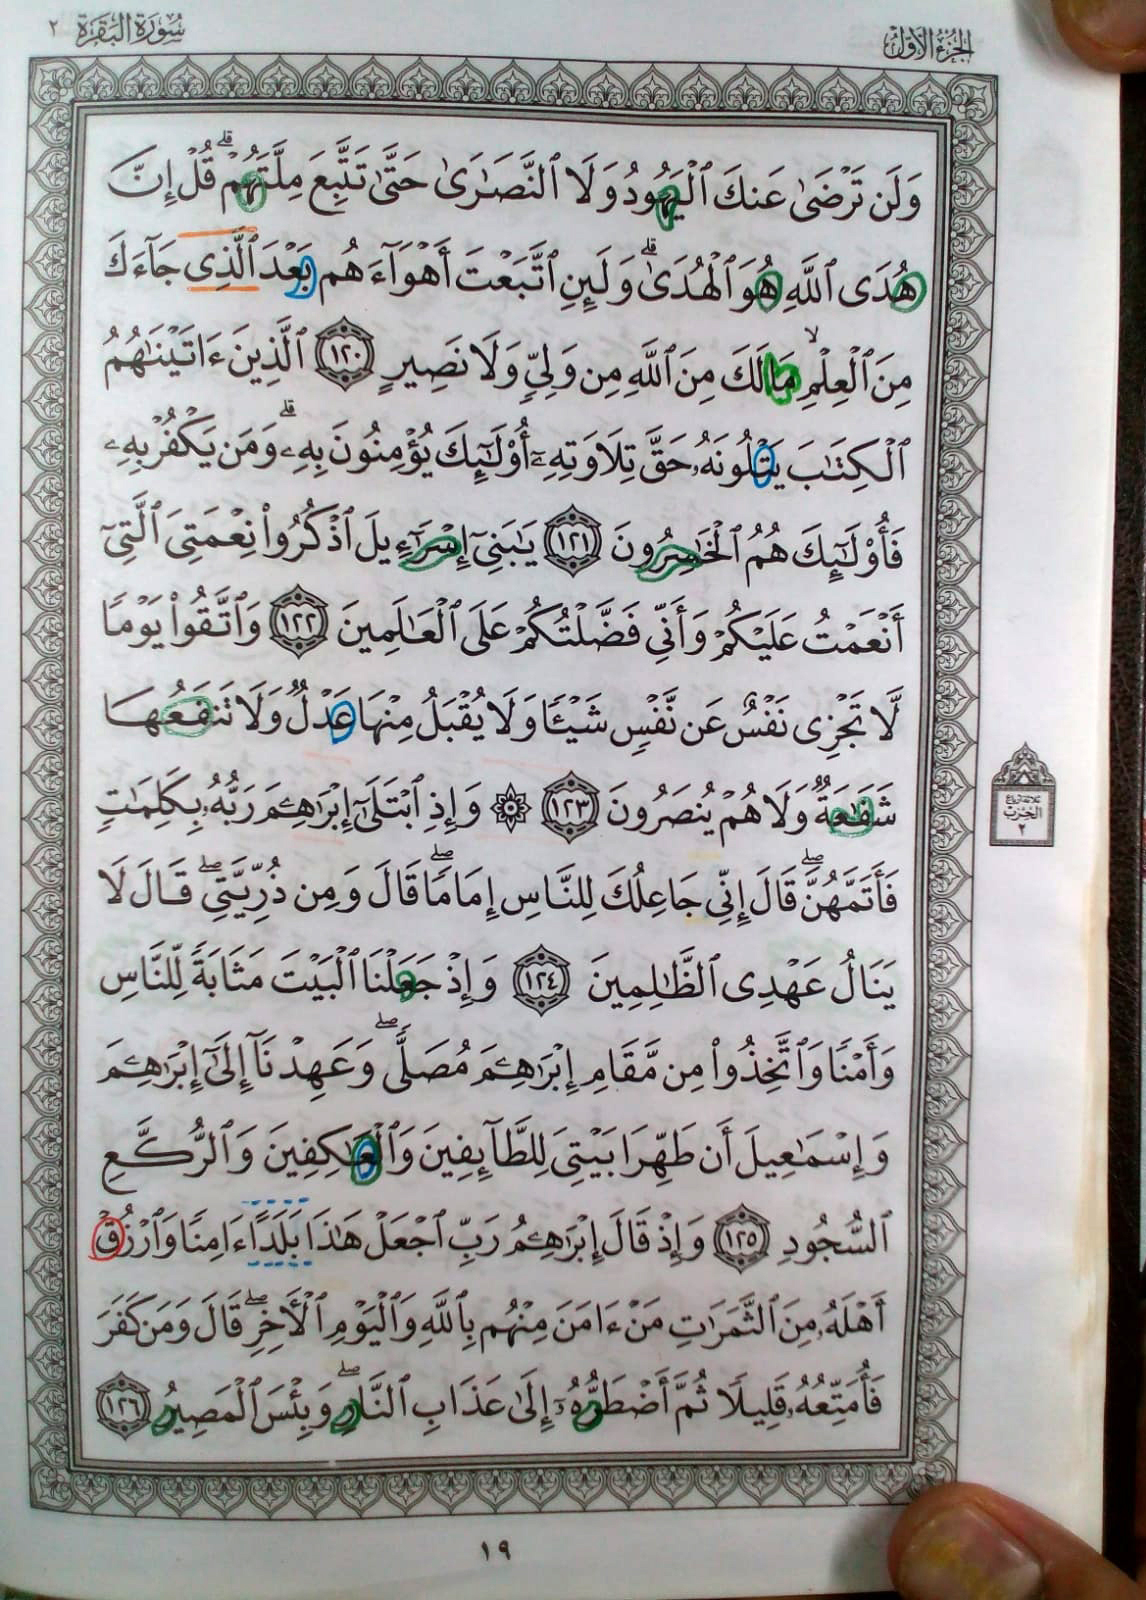 الجزء الأول
سورة البقرة ٢
وَلَن تَرْضَىٰ عَنكَ ٱلْيَهُودُ وَلَا ٱلنَّصَٰرَىٰ حَتَّىٰ تَتَّبِعَ مِلَّتَهُمْ ۗ قُلْ إِنَّ
هُدَى ٱللَّهِ هُوَ ٱلْهُدَىٰ ۗ وَلَئِنِ ٱتَّبَعْتَ أَهْوَآءَهُم بَعْدَ ٱلَّذِى جَآءَكَ
مِنَ ٱلْعِلْمِ ۙ مَا لَكَ مِنَ ٱللَّهِ مِن وَلِىٍّ وَلَا نَصِيرٍ ١٢٠ ٱلَّذِينَ ءَاتَيْنَٰهُمُ
ٱلْكِتَٰبَ يَتْلُونَهُۥ حَقَّ تِلَاوَتِهِۦٓ أُو۟لَٰٓئِكَ يُؤْمِنُونَ بِهِۦ ۗ وَمَن يَكْفُرْ بِهِۦ
فَأُو۟لَٰٓئِكَ هُمُ ٱلْخَٰسِرُونَ ١٢١ يَٰبَنِىٓ إِسْرَٰٓءِيلَ ٱذْكُرُوا۟ نِعْمَتِىَ ٱلَّتِىٓ
أَنْعَمْتُ عَلَيْكُمْ وَأَنِّى فَضَّلْتُكُمْ عَلَى ٱلْعَٰلَمِينَ ١٢٢ وَٱتَّقُوا۟ يَوْمًا
لَّا تَجْزِى نَفْسٌ عَن نَّفْسٍ شَيْـًٔا وَلَا يُقْبَلُ مِنْهَا عَدْلٌ وَلَا تَنفَعُهَا
شَفَٰعَةٌ وَلَا هُمْ يُنصَرُونَ ١٢٣ ۞ وَإِذِ ٱبْتَلَىٰٓ إِبْرَٰهِـۧمَ رَبُّهُۥ بِكَلِمَٰتٍ
ثلاثة أرباع
الحزب
٢
فَأَتَمَّهُنَّ ۖ قَالَ إِنِّى جَاعِلُكَ لِلنَّاسِ إِمَامًا ۖ قَالَ وَمِن ذُرِّيَّتِى ۖ قَالَ لَا
يَنَالُ عَهْدِى ٱلظَّٰلِمِينَ ١٢٤ وَإِذْ جَعَلْنَا ٱلْبَيْتَ مَثَابَةً لِّلنَّاسِ
وَأَمْنًا وَٱتَّخِذُوا۟ مِن مَّقَامِ إِبْرَٰهِـۧمَ مُصَلًّى ۖ وَعَهِدْنَآ إِلَىٰٓ إِبْرَٰهِـۧمَ
وَإِسْمَٰعِيلَ أَن طَهِّرَا بَيْتِىَ لِلطَّآئِفِينَ وَٱلْعَٰكِفِينَ وَٱلرُّكَّعِ
ٱلسُّجُودِ ١٢٥ وَإِذْ قَالَ إِبْرَٰهِـۧمُ رَبِّ ٱجْعَلْ هَٰذَا بَلَدًا ءَامِنًا وَٱرْزُقْ
أَهْلَهُۥ مِنَ ٱلثَّمَرَٰتِ مَنْ ءَامَنَ مِنْهُم بِٱللَّهِ وَٱلْيَوْمِ ٱلْءَاخِرِ ۖ قَالَ وَمَن كَفَرَ
فَأُمَتِّعُهُۥ قَلِيلًا ثُمَّ أَضْطَرُّهُۥٓ إِلَىٰ عَذَابِ ٱلنَّارِ ۖ وَبِئْسَ ٱلْمَصِيرُ ١٢٦
١٩